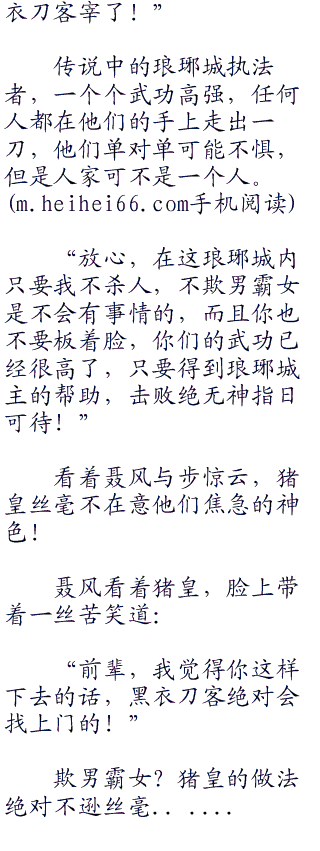 衣刀客宰了！”
传说中的琅琊城执法
者，一个个武功高强，任何
人都在他们的手上走出一
刀，他们单对单可能不惧，
但是人家可不是一个人。
(m.heihei66.com手机阅读)
“放心，在这琅琊城内
只要我不杀人，不欺男霸女
是不会有事情的，而且你也
不要板着脸，你们的武功已
经很高了，只要得到琅琊城
主的帮助，击败绝无神指日
可待！”
看着聂风与步惊云，猪
皇丝毫不在意他们焦急的神
色！
聂风看着猪皇，脸上带
着一丝苦笑道：
“前辈，我觉得你这样
下去的话，黑衣刀客绝对会
找上门的！”
欺男霸女？猪皇的做法
绝对不逊丝毫．．．．．．